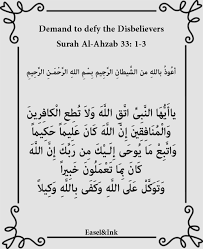 Demand to defy the Disbelievers
Surah Al-Ahzab 33: 1-3
أعوذُ باللهِ منَ الشَّيطانِ الرَّجيمِ بِسْمِ اللهِ الرَّحْمَنِ الرَّحِيمِ
ياأَيُّهَا النَّبِيُّ اتَّقِ اللَّهَ وَلَا تُطِعِ الْكَافِرِينَ
وَالْمُنَافِقِينَ إِنَّ اللَّهَ كَانَ عَلِيمًا حَكِيمًا
وَاتَّبِعْ مَا يُوحَى إِلَيْكَ مِن رَّبِّكَ إِنَّ اللَّهَ
كَانَ بِمَا تَعْمَلُونَ خَبِيرًا
وَتَوَكَّلْ عَلَى اللَّهِ وَكَفَى بِاللَّهِ وَكِيلًا
Easel&Ink